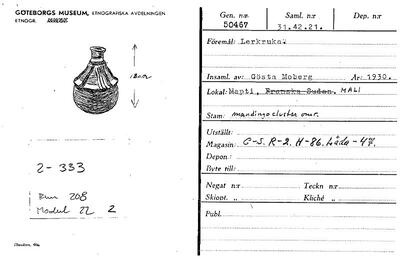 GÖTEBORGS MUSEUM, ETNOGRAFISKA AVDELNINGEN
ETNOGR.
2-333
208
Modul 22 2
Gen. nr:
50467
Saml. nr:
31.42.21.
Dep. nr
Föremål: Lerkruka.
Insaml. av: Gösta Moberg År: 1930.
Lokal: Mapti, Franska Sudan. MALI
Stam: mandingo cluster omr.
Utställt:
Magasin: C-S. R-2. H-86. Låda-47.
Depon.:
Byte till:
Negat nr: Teckn nr:
Skiopt. „ Kliché „
Publ.